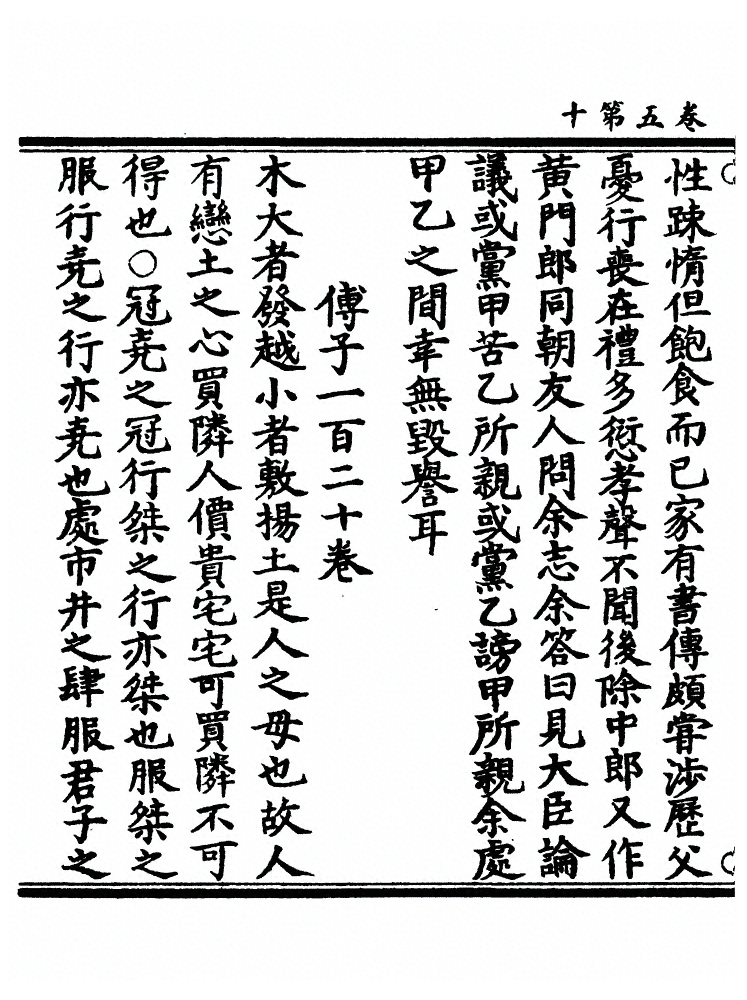 卷五第十
性踈惰但飽食而已家有書傳頗甞渉歷父
憂行喪在禮多愆孝聲不聞後除中郎又作
黄門郎同朝友人問余志余答曰見大臣論
議或黨甲苦乙所親或黨乙謗甲所親余處
甲乙之間幸無毀譽耳
傅子一百二十卷
木大者發越小者敷揚土是人之母也故人
有戀土之心買隣人價貴宅宅可買隣不可
得也○冠堯之冠行桀之行亦桀也服桀之
服行堯之行亦堯也處市井之肆服君子之